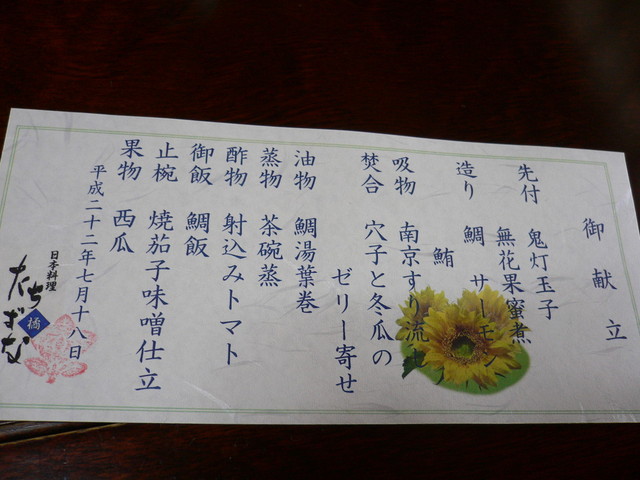 御献立
先付 鬼灯玉子
無花果蜜煮
造り 鯛 サーモン
鮪
吸物 南京すり流し
焚合 穴子と冬瓜の
ゼリー寄せ
油物 鯛湯葉巻
蒸物 茶碗蒸
酢物 射込みトマト
御飯 鯛飯
止椀 焼茄子味噌仕立
果物 西瓜
平成二十二年七月十八日
日本料理
たちばな
橘